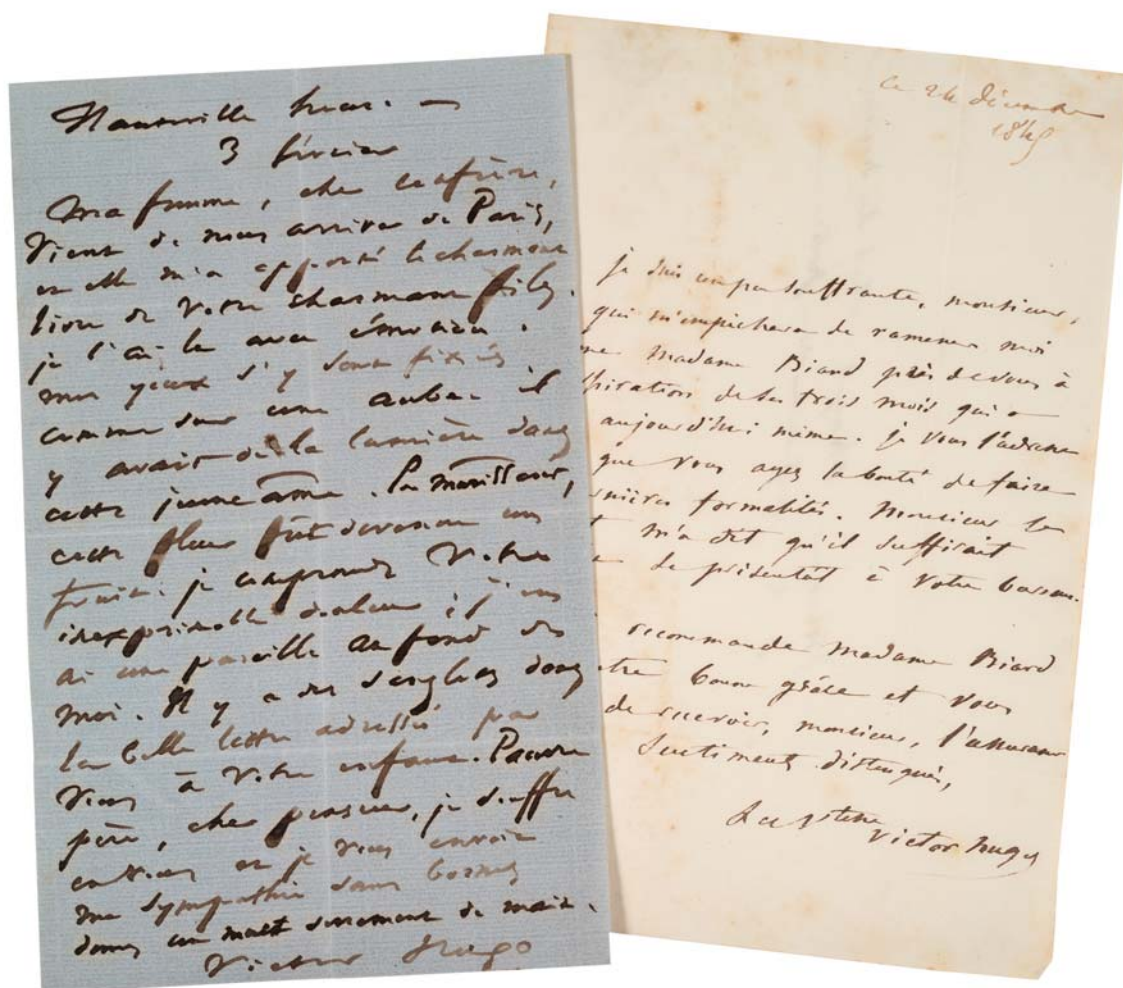 Hauteville house. —
3 février
Ma femme, cher confrère,
vient de nous arriver de Paris,
et elle m'a apporté le charmant
livre de votre charmant fils.
je l'ai lu avec émotion.
mes yeux s'y sont fixés
comme sur une aube. il
y avait de la lumière dans
cette jeune âme. En
cette fleur fût devenue un
fruit. je comprends votre
inexprimable douleur ; j'en
ai une pareille au fond de
moi. Il y a des sanglots dans
la belle lettre adressée par
vous à votre enfant. Pauvre
père, cher penseur, je souffre
en vous et je vous envoie
ma sympathie sans bornes
dans un muet serrement de main.
Victor Hugo
ce 24 décembre
184
je suis un peu souffrante, monsieur,
qui m'empêchera de ramener moi
me Madame Biard près de vous à
piration de ses trois mois qui a
aujourd'hui même. je vous l'adresse
que vous ayez la bonté de faire
nières formalités. Monsieur le
t m'a dit qu'il suffirait
se présentât à votre bureau.
recommande madame Biard
tre bonne grâce et vous
de recevoir, monsieur, l'assurance
sentiments distingués,
Victor Hugo